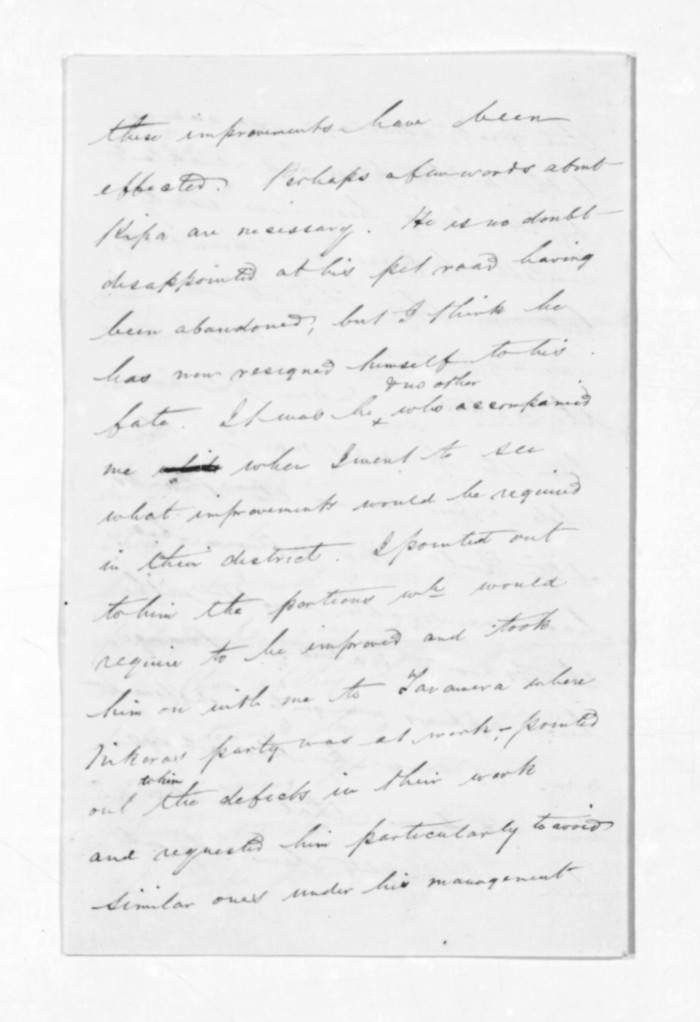 these improvements have been
effected. Perhaps a few words about
Kipa are necessary. He is no doubt
disappointed at his pet road having
been abandoned, but I think he
has now resigned himself to his
& no other
fate. It was he x who accompanied
me when I went to see
what improvements would be required
in their district. I pointed out
to him the portions wh would
require to be improved and took
him on with me to where
party was at work, pointed
to him
out the defects in their work
and requested him particularly to avoid
similar ones under his management